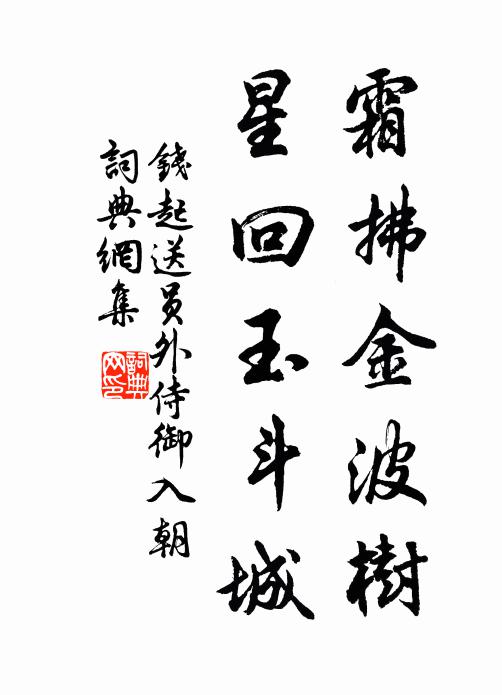 霜拂金波樹
星回玉斗城
錢起送員外侍御入朝
詞典網集
詞典网印